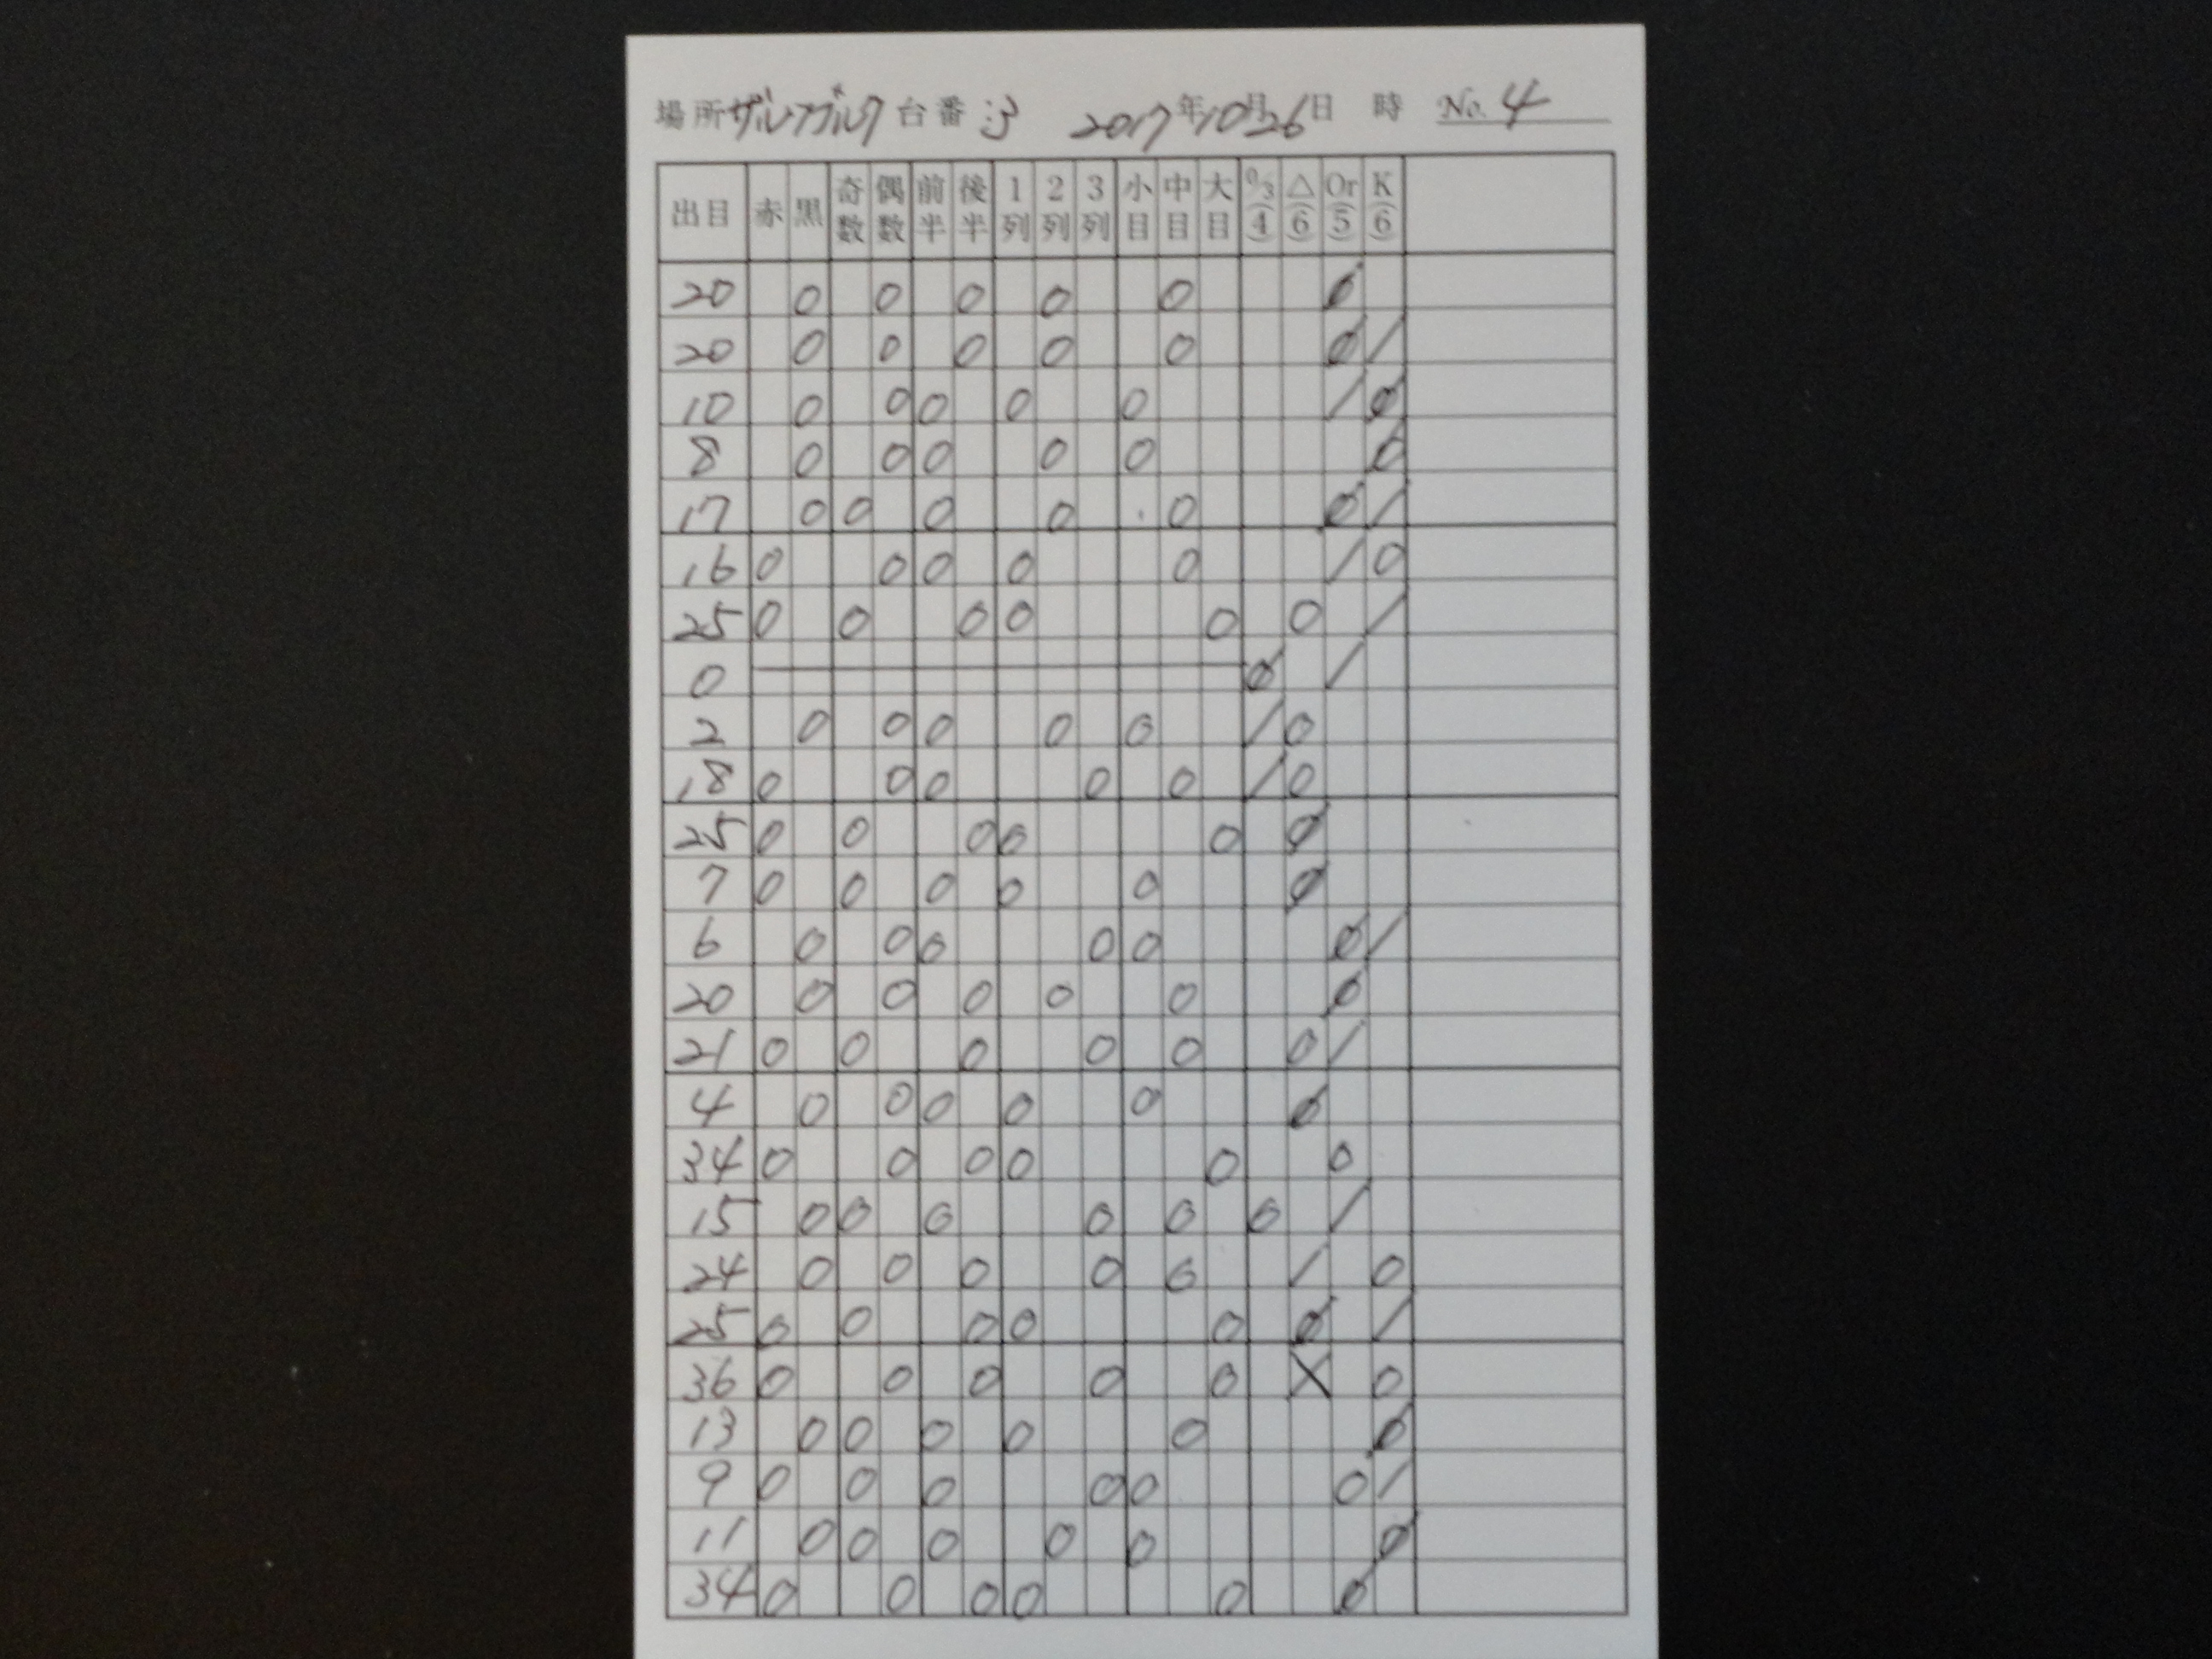 場所 ザルツブルク 台番 3 2017年10月26日 時 No. 4
出目 赤 黒 奇数 偶数 前半 後半 1列 2列 3列 小目 中目 大目 0/3(4) △(6) Or(5) K(6)
20 0 0 0 0 0 0
20 0 0 0 0 0 0 /
10 0 0 0 0 0 / 0
8 0 0 0 0 0 0
17 0 0 0 0 0 0 /
16 0 0 0 0 0 / 0
25 0 0 0 0 0 0 /
0 0 /
2 0 0 0 0 0 / 0
18 0 0 0 0 0 / 0
25 0 0 0 0 0 0
7 0 0 0 0 0 0
6 0 0 0 0 0 0 /
20 0 0 0 0 0 0
21 0 0 0 0 0 0 /
4 0 0 0 0 0 0
34 0 0 0 0 0 0
15 0 0 0 0 0 0 /
24 0 0 0 0 0 / 0
25 0 0 0 0 0 0 /
36 0 0 0 0 0 X 0
13 0 0 0 0 0 0
9 0 0 0 0 0 0 /
11 0 0 0 0 0 0
34 0 0 0 0 0 0